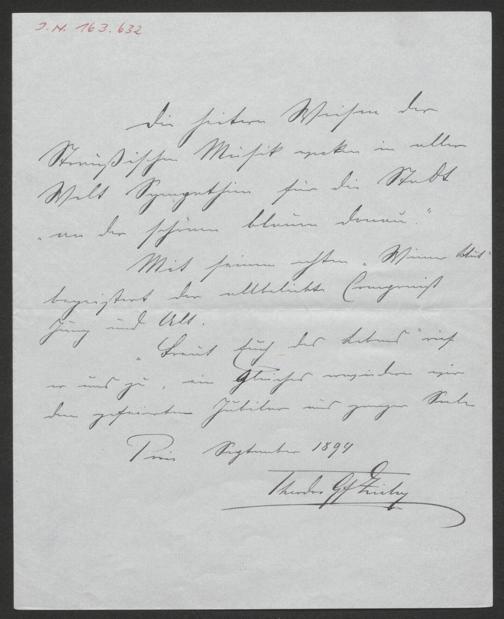 J.N. 163.632
Die heitern Weisen der
Straußischen Musik wecken in aller
Welt Sympathien für die Stadt
"an der schönen blauen Donau."
Mit seinem echten "Wiener Blut"
begeistert der allbeliebte Componist
Jung und Alt.
"Freut Euch des Lebens" ruft
er uns zu, ein Gleiches erwidern wir
dem gefeierten Jubilar aus ganzer Seele
September 1894
Theodor Gf